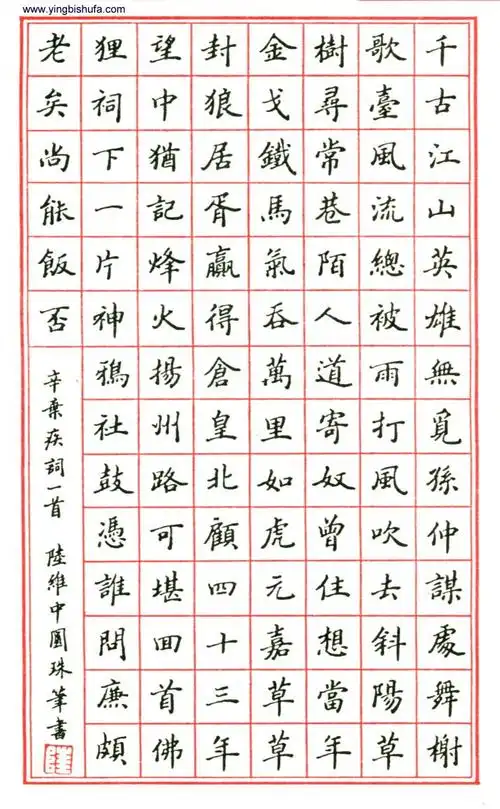 www.yingbishufa.com
千古江山英雄無覓孫仲謀處舞榭
歌臺風流總被雨打風吹去斜陽草
樹尋常巷陌人道寄奴曾住想當年
金戈鐵馬氣吞萬里如虎元嘉草草
封狼居胥贏得倉皇北顧四十三年
望中猶記烽火揚州路可堪囬首佛
狸祠下一片神鴉社鼓憑誰問廉頗
老矣尚能飯否
辛棄疾詞一首 陸維中圓珠筆書